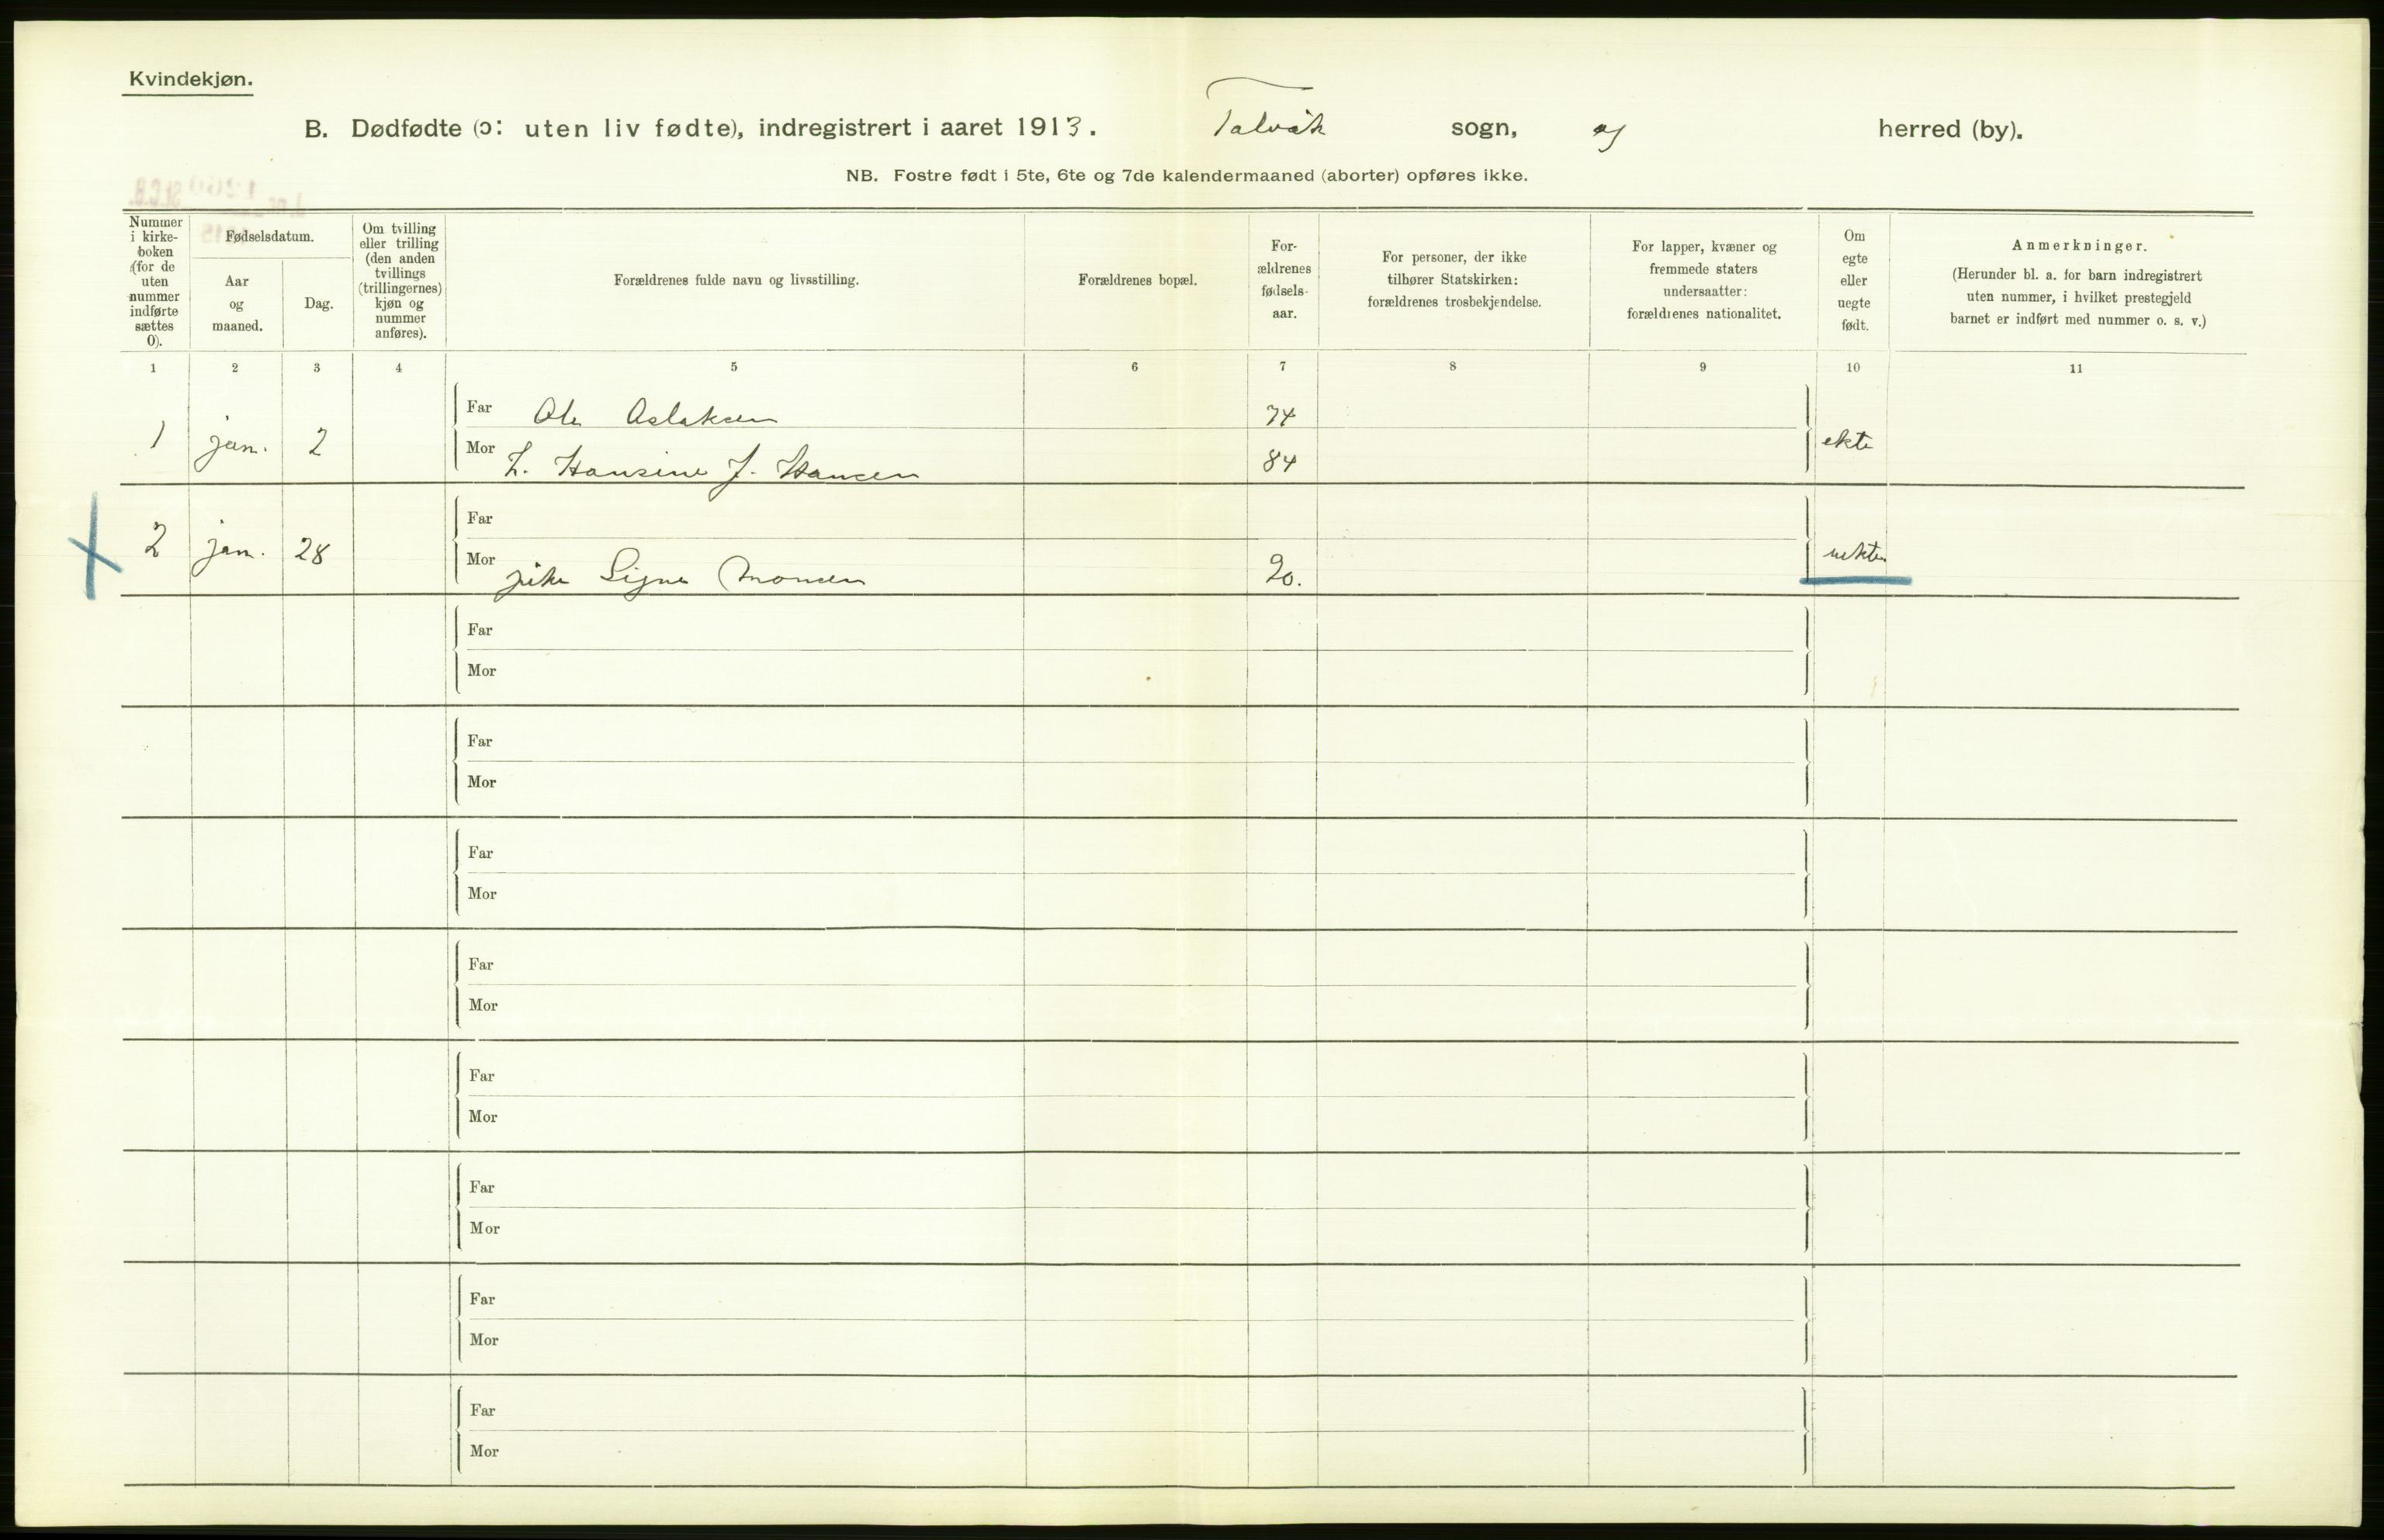 Kvindekjøn.
B. Dødfødte (ɔ: uten liv fødte), indregistrert i aaret 1913. Talvik sogn, og herred (by).
NB. Fostre født i 5te, 6te og 7de kalendermaaned (aborter) opføres ikke.
Nummer
i kirke-
boken
(for de
uten
nummer
indførte
sættes
0).
Fødselsdatum.
Aar
og
maaned.
Dag.
Om tvilling
eller trilling
(den anden
tvillings
(trillingernes)
kjøn og
nummer
anføres).
Forældrenes fulde navn og livsstilling.
Forældrenes bopæl.
For-
ældrenes
fødsels-
aar.
For personer, der ikke
tilhører Statskirken:
forældrenes trosbekjendelse.
For lapper, kvæner og
fremmede staters
undersaatter:
forældrenes nationalitet.
Om
egte
eller
uegte
født.
Anmerkninger.
(Herunder bl. a. for barn indregistrert
uten nummer, i hvilket prestegjeld
barnet er indført med nummer o. s. v.)
1 2 3 4 5 6 7 8 9 10 11
Far Ole Aslaksen 74
1 jan. 2 ekte
Mor L. Hansine J. Hansen 84
Far
2 jan. 28 uekte
Mor pike Signe Monsen 90.
Far
Mor
Far
Mor
Far
Mor
Far
Mor
Far
Mor
Far
Mor
Far
Mor
Far
Mor